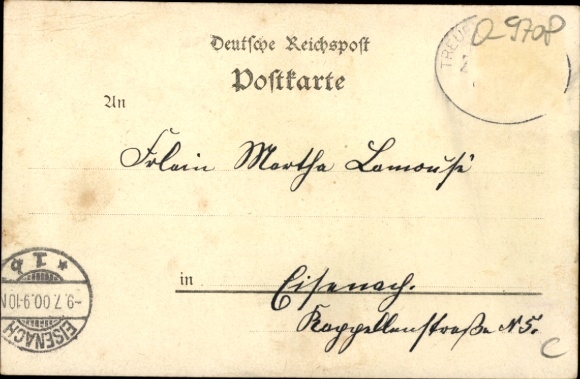 Deutsche Reichspost
Postkarte
TREUE
Q-9708
An
Frlein Martha Lamousé
* I b
-9.7.00.9-10N
EISENACH
in
Eisenach.
Kappellenstraße N 5.
C